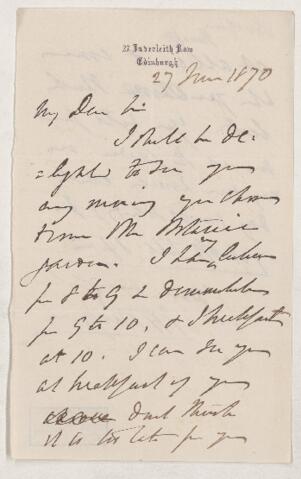 27 Inverleith Row
Edinburgh
27 June 1870
My Dear Sir
I shall be de-
=lighted to see you
any morning you choose
from the Botanic
garden. I have my lecture
fm 8 to 9 &
fm 9 to 10, & I breakfast
at 10. I can see you
at breakfast if you
dont think
it is too late for you